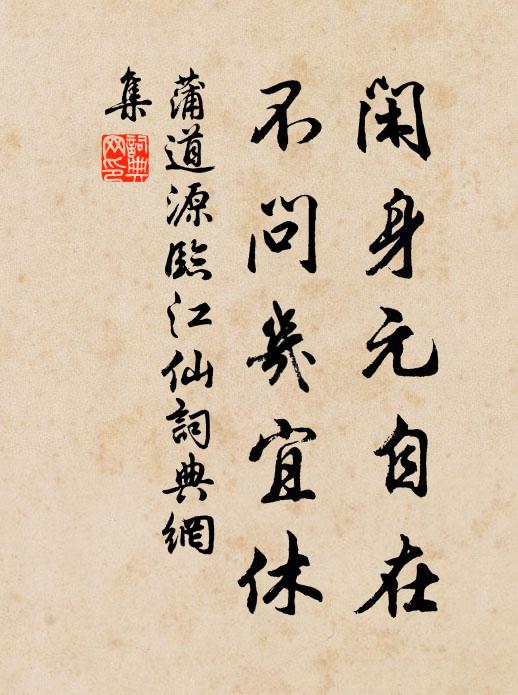 閑身元自在
不問幾宜休
蒲道源臨江仙詞典網
集
詞典
网印